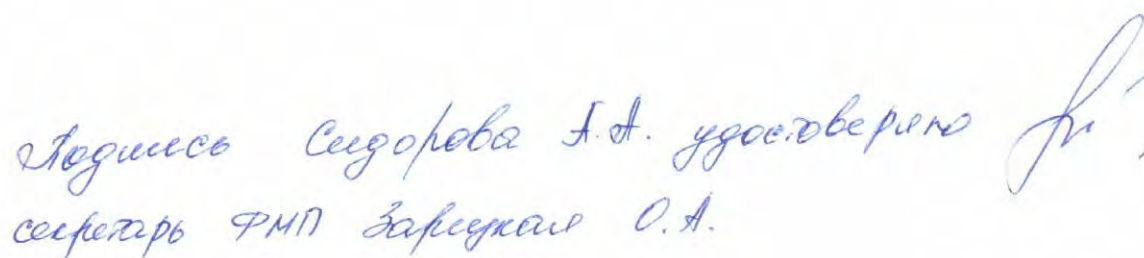 Подпись Сидорова А.А. удостоверяю
секретарь ФМП Зарицкая О.А.